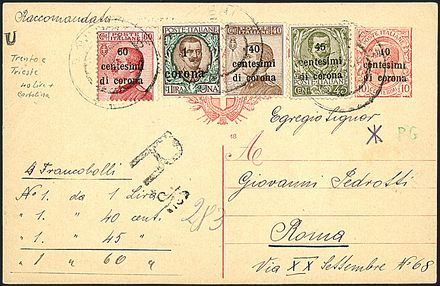 Raccomandata
U
Trento e
Trieste
40 lire +
Cartolina
POSTE ITALIANE
60
centesimi
di corona
POSTE ITALIANE
1
corona
LIRA UNA
POSTE ITALIANE 40
40
centesimi
di corona
45
centesimi
di corona
CENT. 45
10
centesimi
di corona
10
16
Egregio Signor
PG
A
Giovanni Pedrotti
Roma
Via XX Settembre N° 68
4 Francobolli
N° 1. da 1 Lira
" 1. " 40 cent.
" 1. " 45 "
" 1 " 60 "
R
283